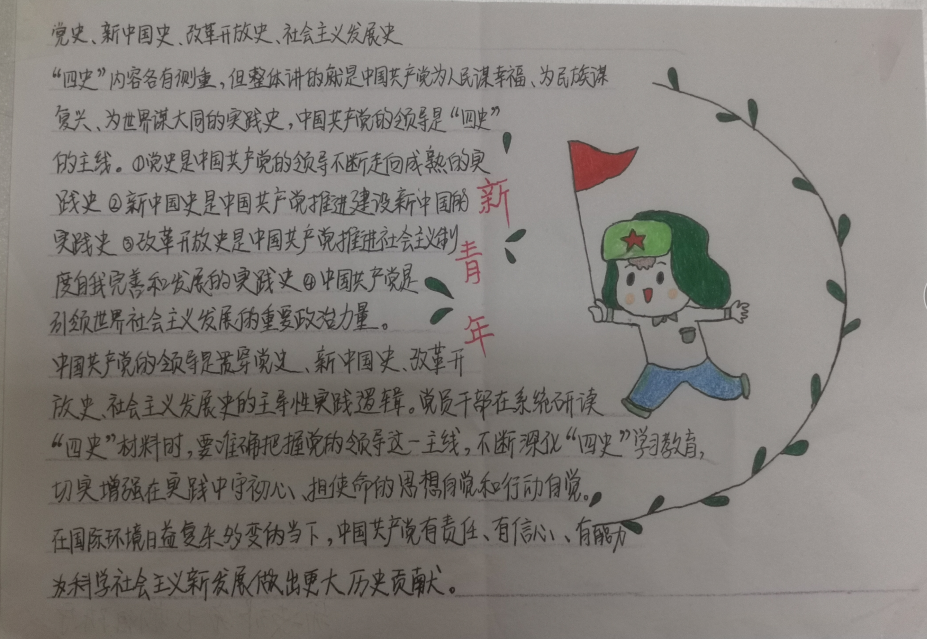 党史、新中国史、改革开放史、社会主义发展史
“四史”内容各有侧重，但整体讲的就是中国共产党为人民谋幸福、为民族谋
复兴、为世界谋大同的实践史，中国共产党的领导是“四史”
的主线。①党史是中国共产党的领导不断走向成熟的实
践史②新中国史是中国共产党推进建设新中国的
实践史③改革开放史是中国共产党推进社会主义制
度自我完善和发展的实践史④中国共产党是
引领世界社会主义发展的重要政治力量。
中国共产党的领导是贯穿党史、新中国史、改革开
放史、社会主义发展史的主导性实践逻辑。党员干部在系统研读
“四史”材料时，要准确把握党的领导这一主线，不断深化“四史”学习教育，
切实增强在实践中守初心、担使命的思想自觉和行动自觉。
在国际环境日益复杂多变的当下，中国共产党有责任、有信心、有能力
为科学社会主义新发展做出更大历史贡献。
新
青
年